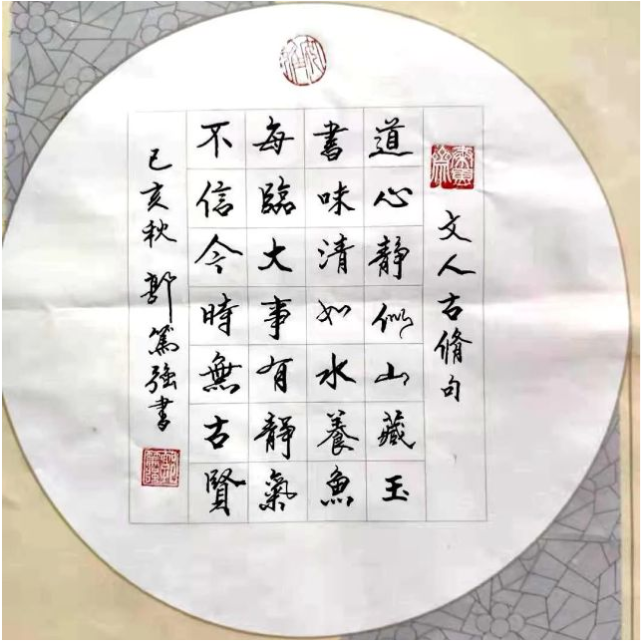 文人古脩句
道心靜似山藏玉
書味清如水養魚
每臨大事有靜氣
不信今時無古賢
己亥秋 郭篤強書